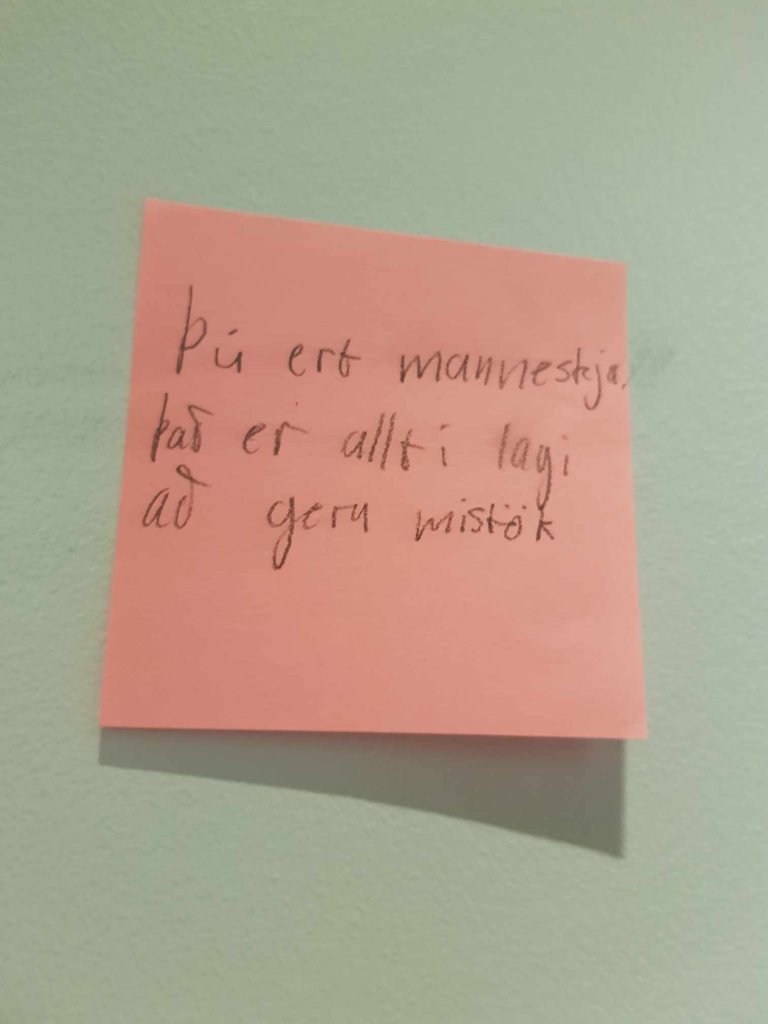 Þú ert manneskja,
það er allt í lagi
að gera mistök